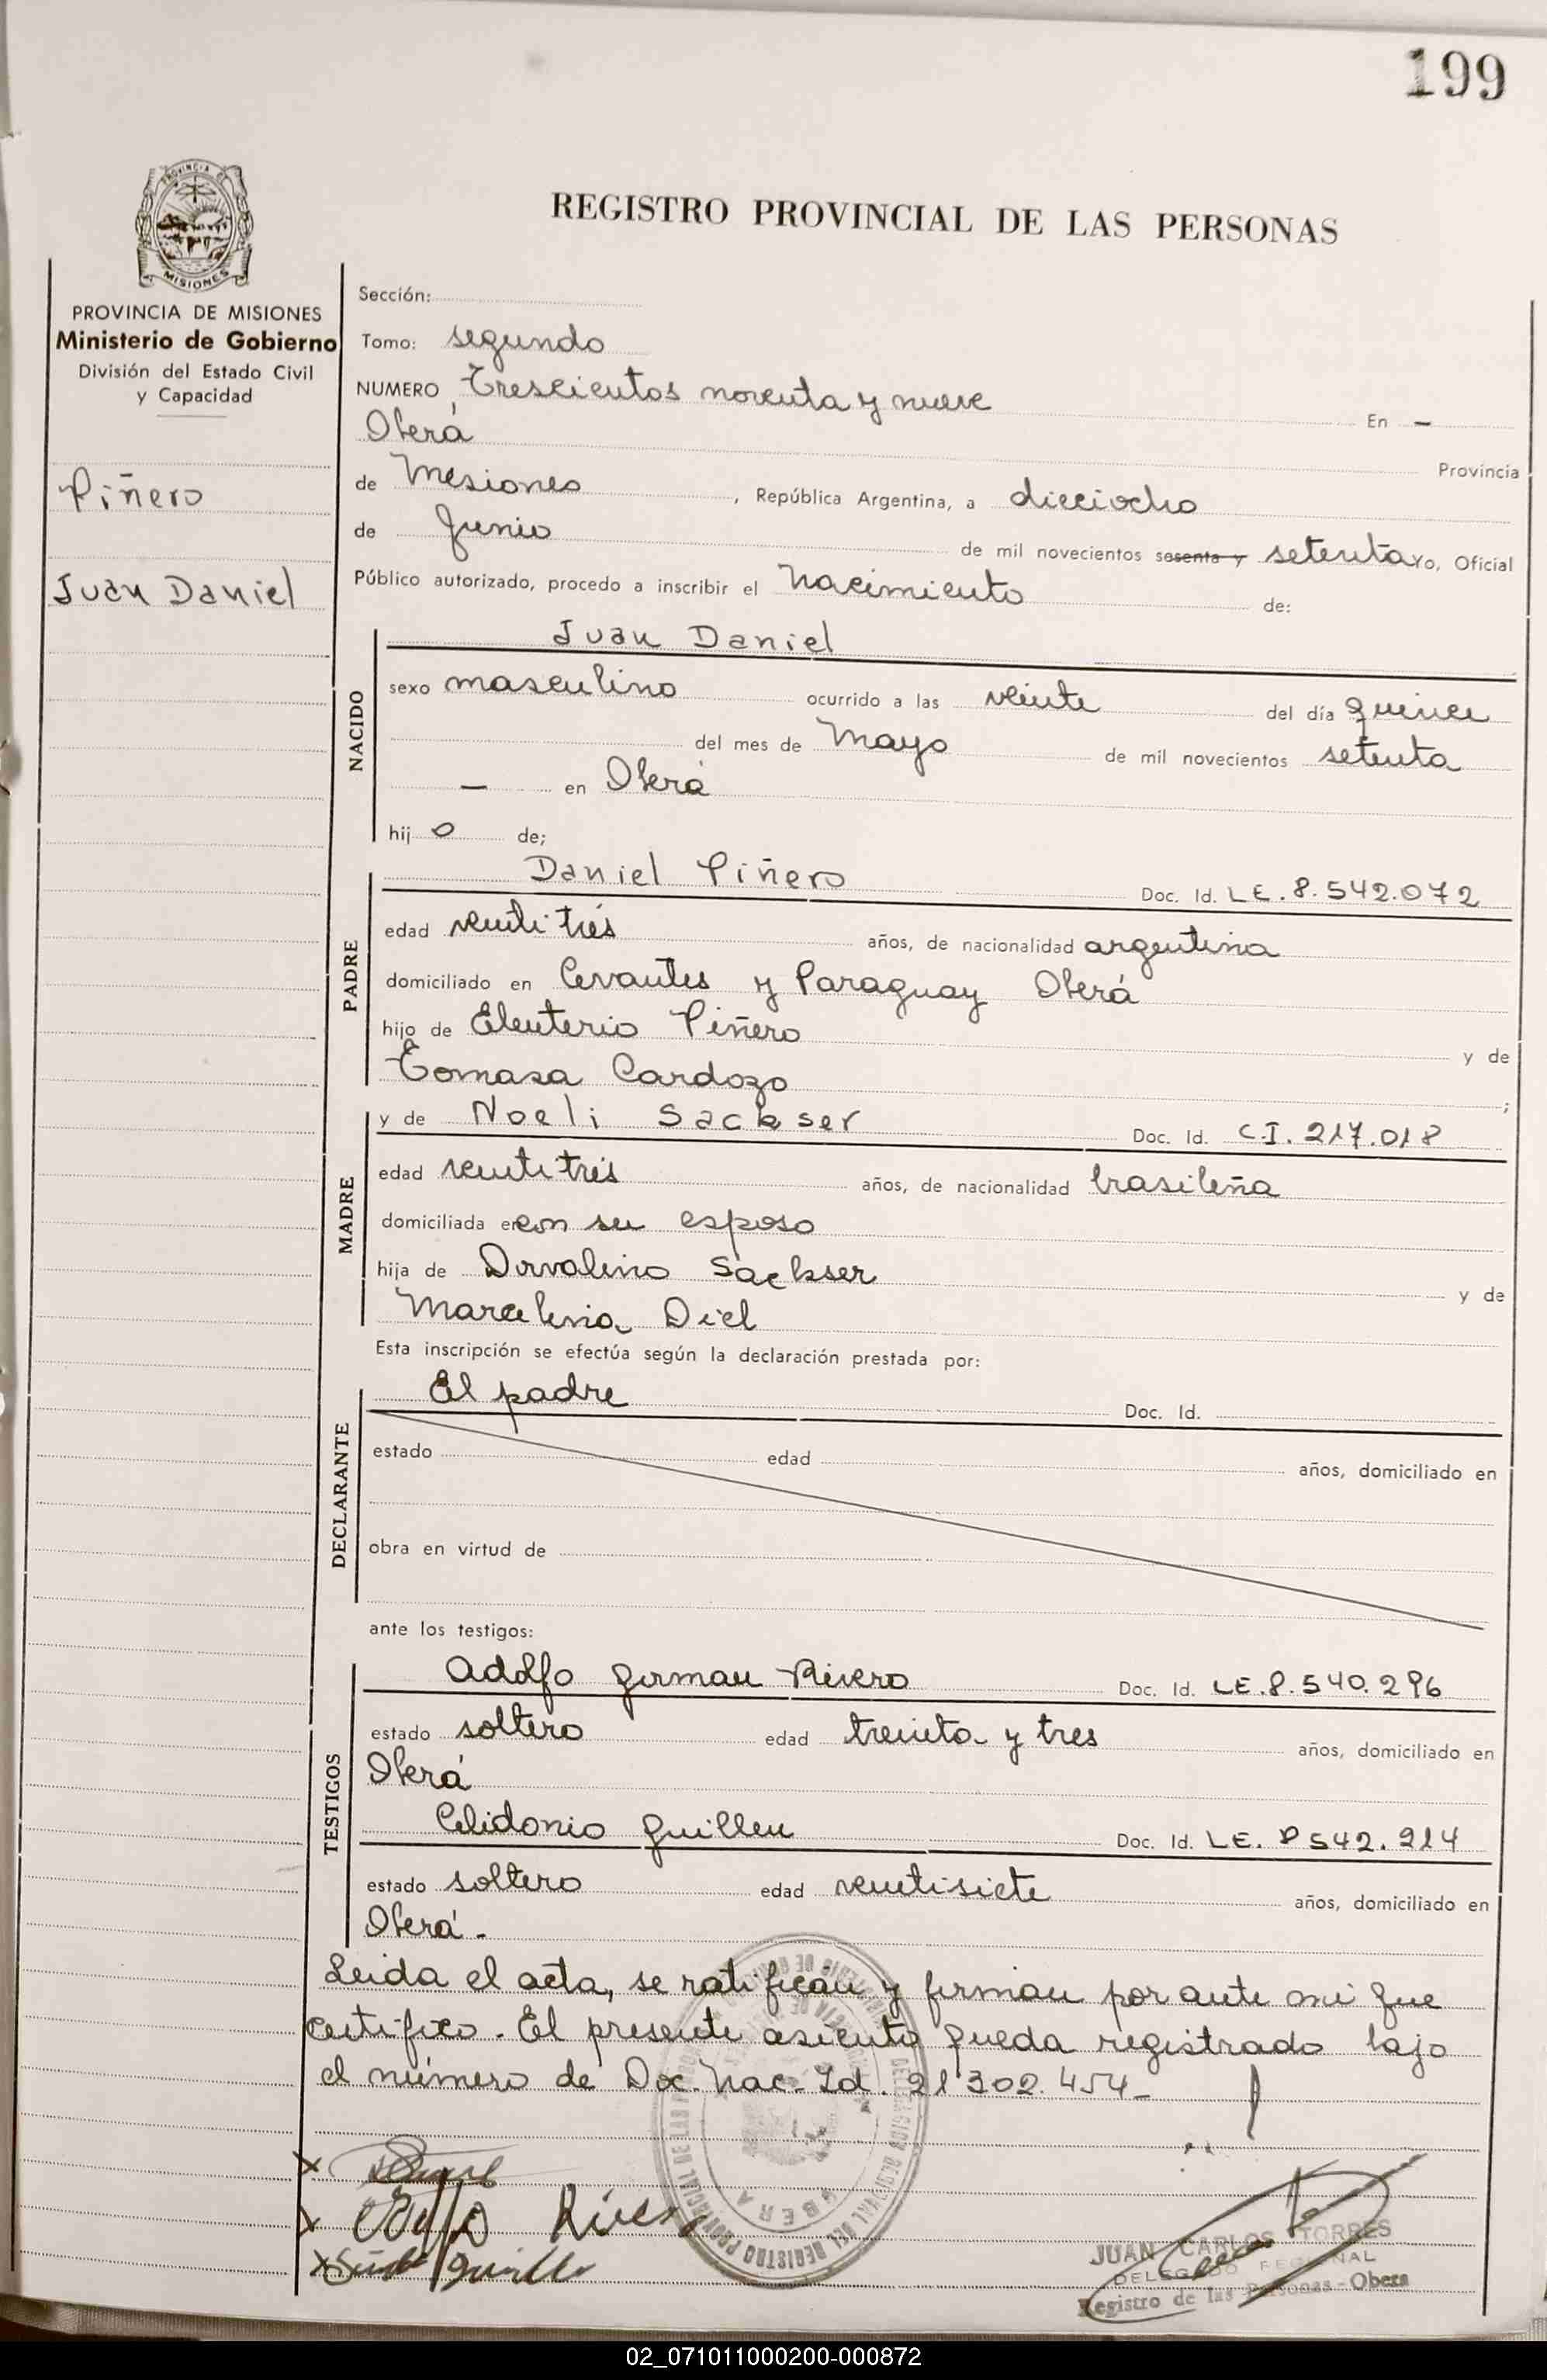 199
PROVINCIA DE MISIONES
REGISTRO PROVINCIAL DE LAS PERSONAS
PROVINCIA DE MISIONES
Ministerio de Gobierno
División del Estado Civil
y Capacidad
Piñero
Juan Daniel
Sección:
Tomo: segundo
NUMERO Trescientos noventa y nueve En —
Oberá Provincia
de Misiones, República Argentina, a dieciocho
de Junio de mil novecientos sesenta y setenta Yo, Oficial
Público autorizado, procedo a inscribir el Nacimiento de:
NACIDO
Juan Daniel
sexo masculino ocurrido a las veinte del día quince
del mes de Mayo de mil novecientos setenta
— en Oberá
hij o de;
PADRE
Daniel Piñero Doc. Id. LE. 8.542.072
edad veintitrés años, de nacionalidad argentina
domiciliado en Cervantes y Paraguay Oberá
hijo de Eleuterio Piñero y de
Tomasa Cardozo ;
MADRE
y de Noeli Sackser Doc. Id. C.I. 217.018
edad veintitrés años, de nacionalidad brasileña
domiciliada en con su esposo
hija de Dorvalino Sackser y de
Marcelina Diel
Esta inscripción se efectúa según la declaración prestada por:
DECLARANTE
El padre Doc. Id.
estado edad años, domiciliado en
obra en virtud de
ante los testigos:
TESTIGOS
Adolfo German Rivero Doc. Id. LE. 8.540.296
estado soltero edad treinta y tres años, domiciliado en
Oberá
Celidonio Guillen Doc. Id. LE. 8542.914
estado soltero edad veintisiete años, domiciliado en
Oberá.
Leida el acta, se ratifican y firman por ante mi que
certifico. El presente asiento queda registrado bajo
el número de Doc. Nac. Id. 21'302.454-
JUAN CARLOS TORRES
DELEGADO REGIONAL
Registro de las Personas - Obera
02_071011000200-000872